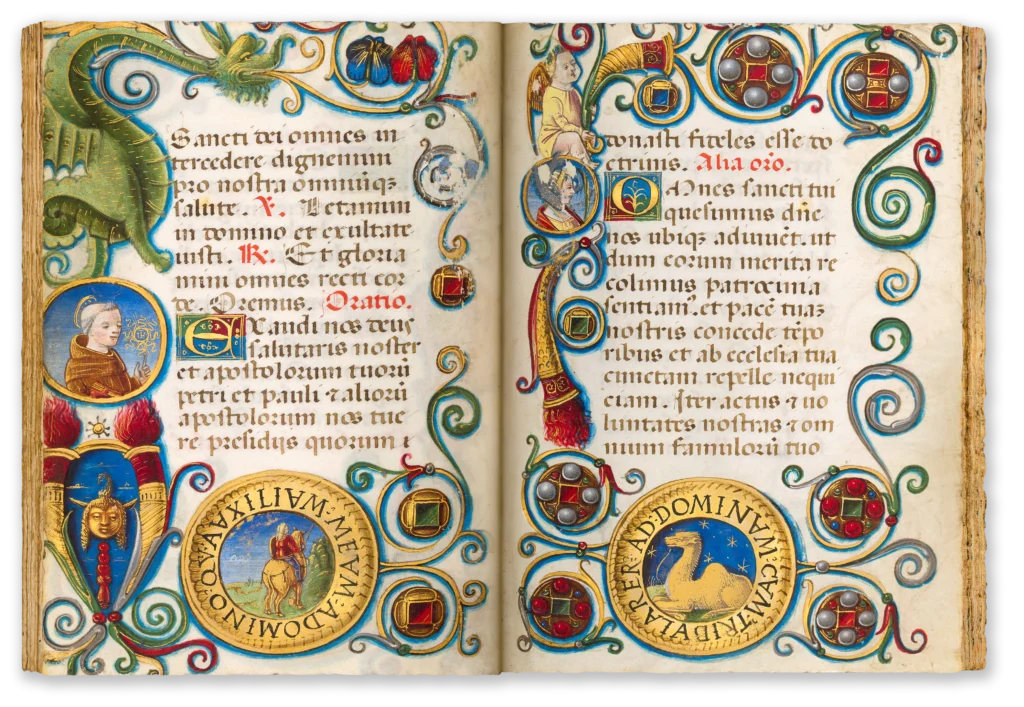 Sancti dei omnes in
tercedere dignemini
pro nostra omniūqꝫ
salute. V. Letamini
in domino et exultate
iusti. R. Et gloria
mini omnes recti cor
de. Oremus. Oratio.
Exaudi nos deus
salutaris noster
et apostolorum tuorū
petri et pauli ⁊ aliorū
apostolorum nos tue
re presidijs quorum
MEVM·A·DOMINO
donasti fideles esse do
ctrinis. Alia oro.
Omnes sancti tui
quesumus dñe
nos ubiqꝫ adiuuēt. ut
dum eorum merita re
colimus patrocinia
sentiamꝰ. et pacē tuaꝫ
nostris concede tēpo
ribus et ab ecclesia tua
cunctam repelle nequi
ciam. Iter actus ⁊ uo
luntates nostras ⁊ om
nium famulorū tuo
AD·DOMINVM·CVM·TRIDVLARER